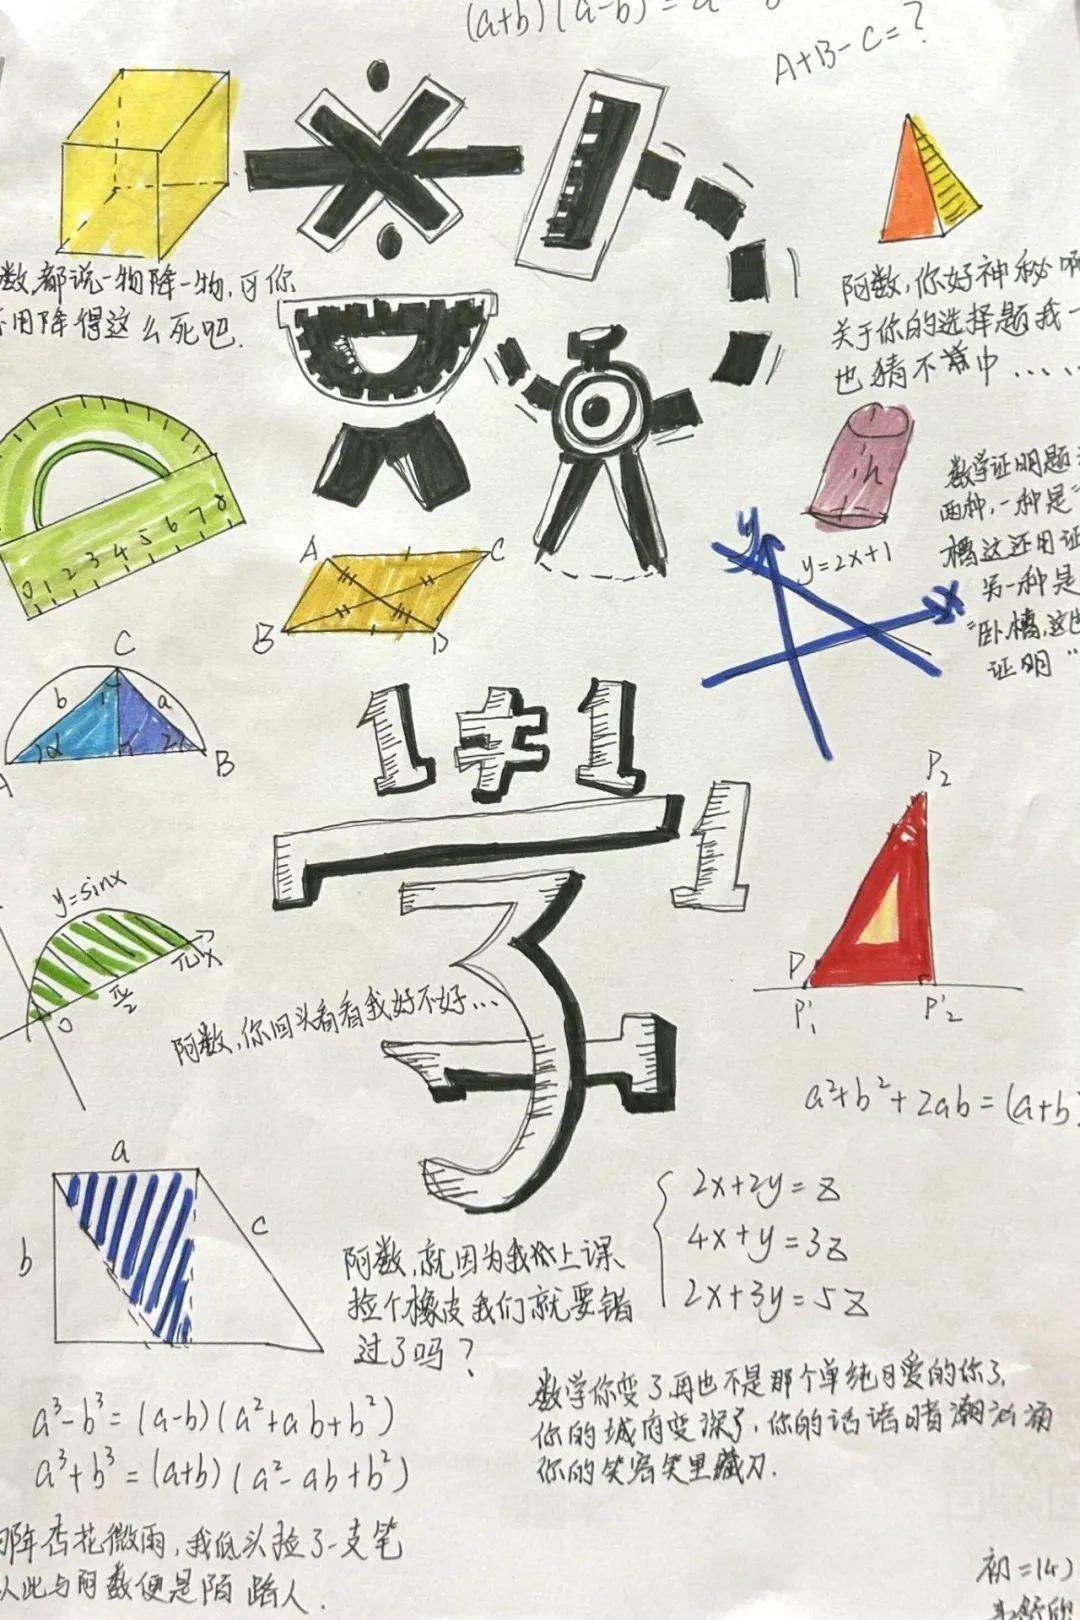 (a+b)(a-b)=a
A+B-C=?
数,都说一物降一物,可你
用降得这么死吧.
阿数,你好神秘啊
关于你的选择题我一
也猜不着中......
数学证明题
两种,一种是"
槽这还用证
另一种是
"卧槽,这也
证明"
h
y=2x+1
y
x
0 1 2 3 4 5 6 7 8
A C
B D
C
b a
1
α 2
A B
1≠1
1
3
y=sinx
0 π/2 π x
阿数,你回头看看我好不好...
P2
P
P'1 P'2
a²+b²+2ab=(a+b)
a
b c
2x+2y=z
4x+y=3z
2x+3y=5z
阿数,就因为我上课
捡个橡皮我们就要错
过了吗?
数学你变了再也不是那个单纯可爱的你了,
你的城府变深了,你的话语暗潮汹涌
你的笑容笑里藏刀.
a³-b³=(a-b)(a²+ab+b²)
a³+b³=(a+b)(a²-ab+b²)
那年杏花微雨,我低头捡了一支笔
从此与阿数便是陌路人.
初二(4)